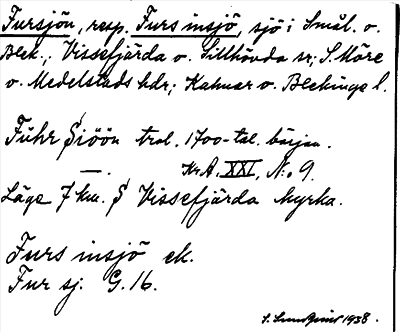 Fursjön, resp. Furs insjö, sjö i Smål. o.
Blek.; Vissefjärda o. Sillhövda sr; S. Möre
o. Medelstads hdr; Kalmar o. Blekinge l.
Fuhr Siöön trol. 1700-tal. början.
KrA. XXI, N:o 9.
Läge 7 km. S Vissefjärda kyrka.
Furs insjö ek.
Fur sj. G. 16.
S. Lundqvist 1938.